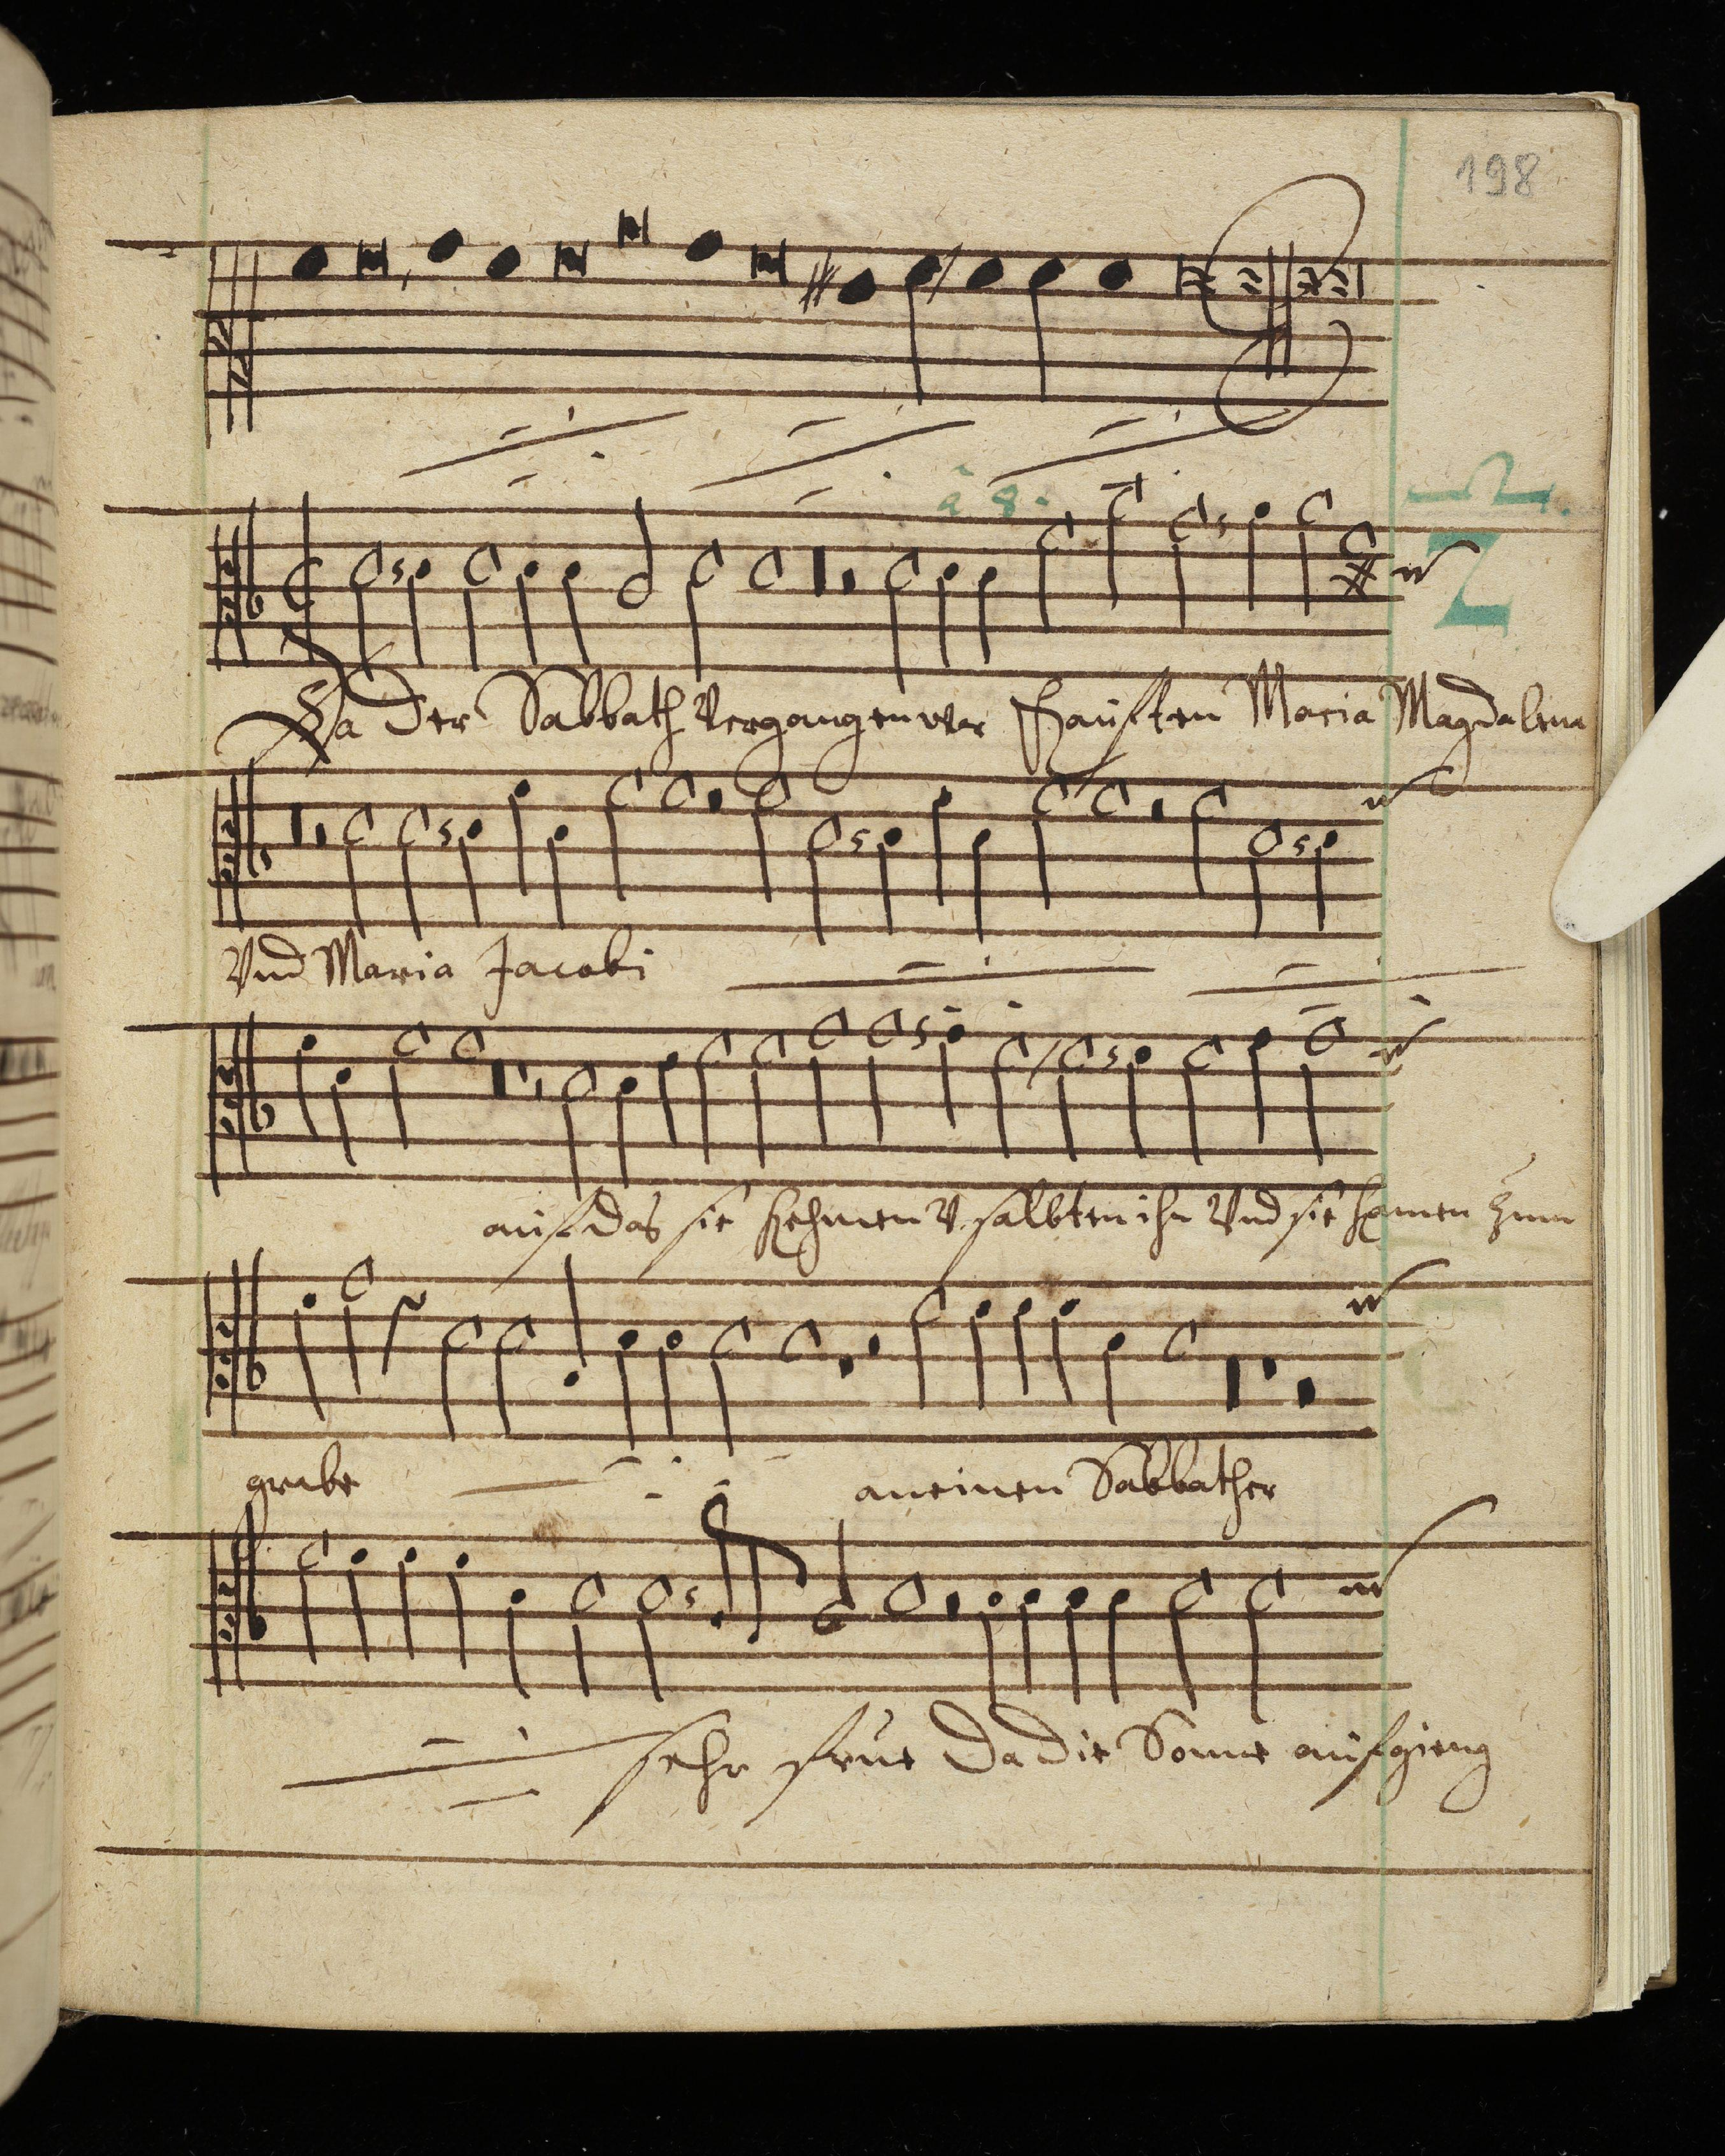 198
à 8.
Da der Sabbath Vergangen war Kauften Maria Magdalena
Vnd Maria Jacobi
auf das sie kehmen V. salbten ihn Vnd sie kamen zum
grabe an einen Sabbather
sehr frue Da die Sonne aufgieng